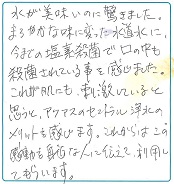 水が美味いのに驚きました。
まろやかな味に変った水道水に、
今までの塩素殺菌で口の中も
殺菌されている事を感じました。
これが肌にも、刺激していると
思うと、アクアスのセントラル浄水の
メリットを感じます。これからはこの
感動を身近な人に伝えて、利用し
てもらいます。